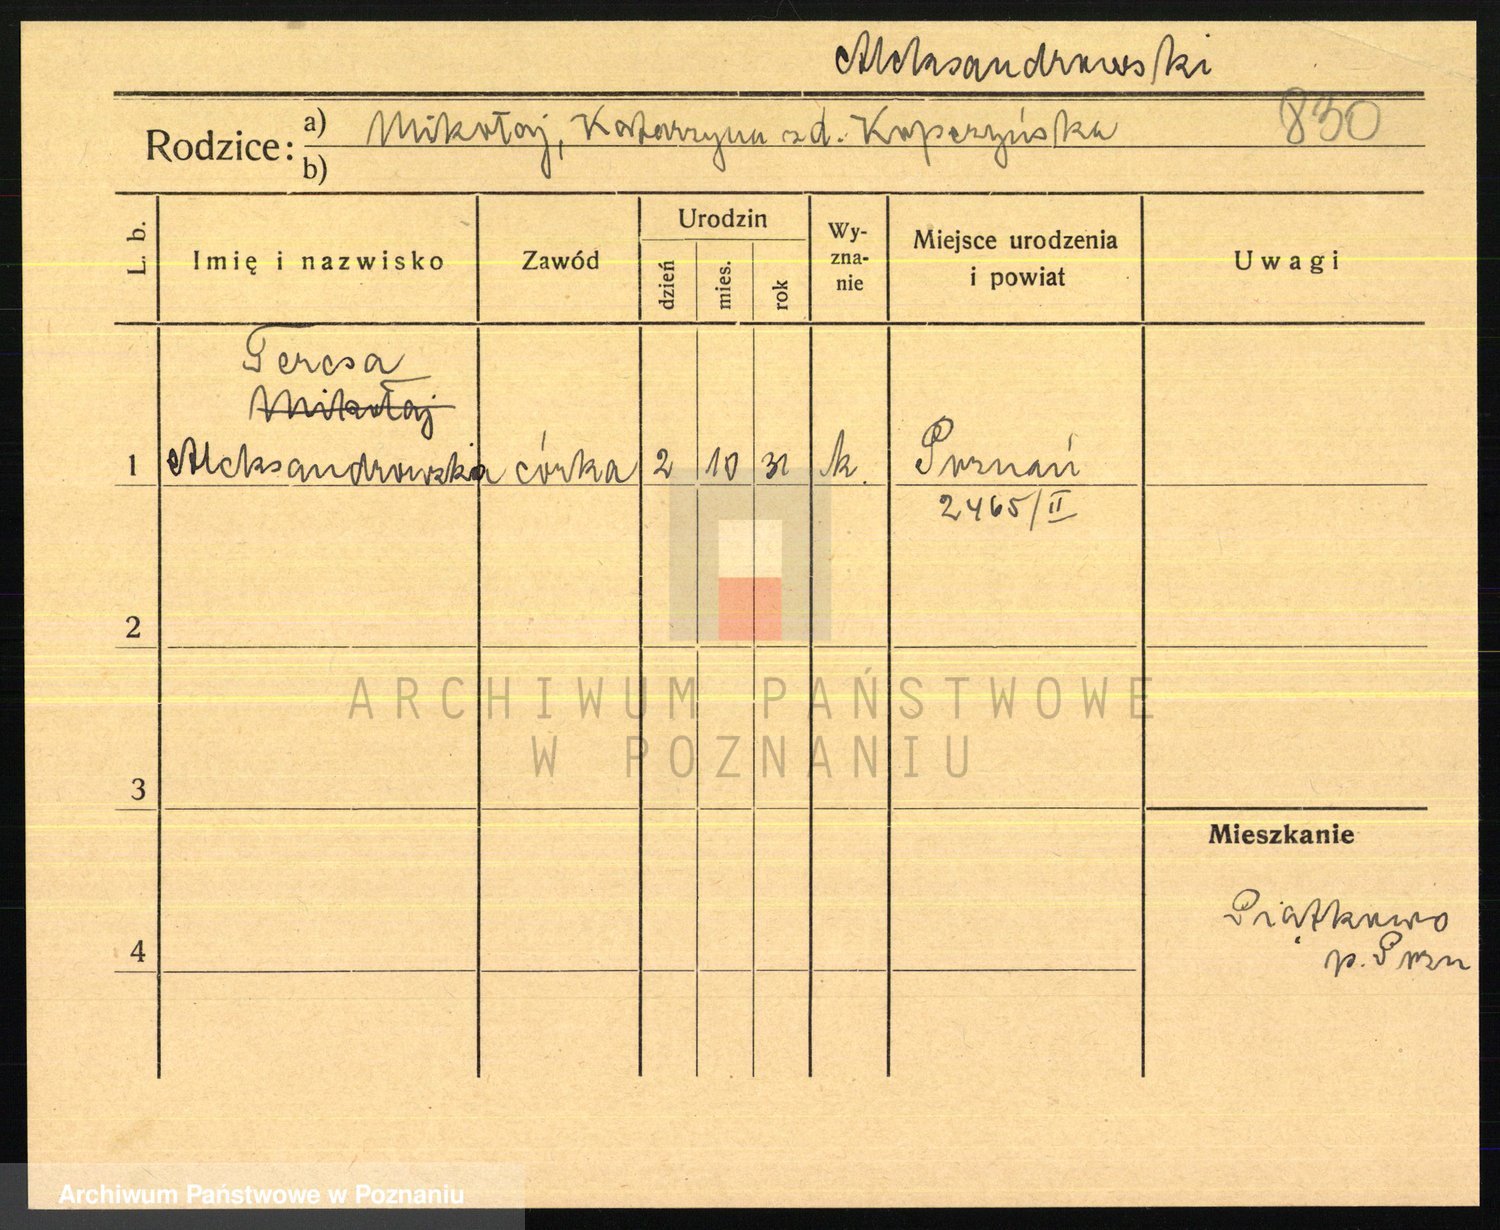 Aleksandrowski
830
Rodzice: a) Mikołaj, Katarzyna zd. Kopczyńska
b)
L. b. Imię i nazwisko Zawód Urodzin dzień mies. rok Wy-zna-nie Miejsce urodzenia i powiat Uwagi
Teresa
Mikołaj
1 Aleksandrowska córka 2 10 31 k. Poznań
2465/II
2
ARCHIWUM PAŃSTWOWE
W POZNANIU
3
Mieszkanie
Piątkowo
p. Pozn
4
Archiwum Państwowe w Poznaniu